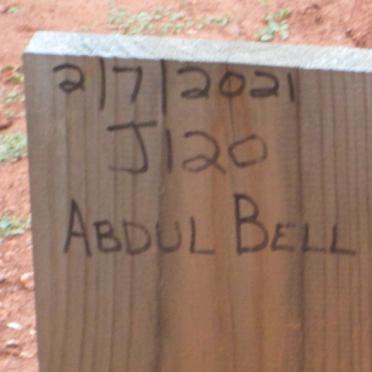 2/7/2021
J120
ABDUL BELL